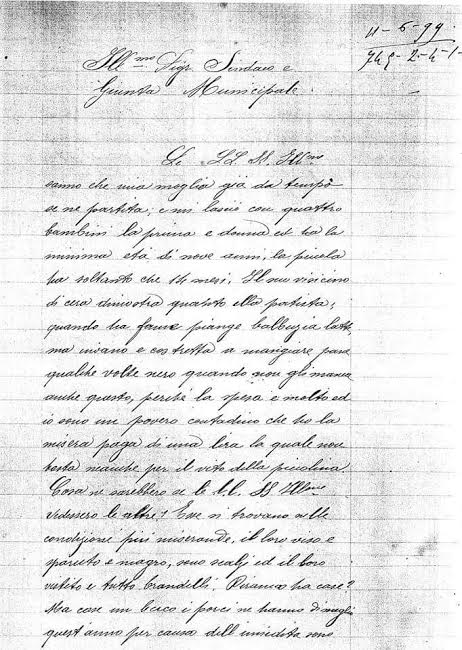 11-6-99
749-2-4-1-
Ill.mo Sigr Sindaco e
Giunta Municipale.
Le LL. SS. Ill.me
sanno che mia moglia già da tempo
se ne partita; e mi lasciò con quattro
bambini la prima e donna ed ha la
minima età di nove anni, la picula
ha soltanto che 14 mesi. Il suo visicino
di cera dimostra quanto ella patisca;
quando ha fame piange balbuzia latte
ma invano e costretta a mangiare pane
qualche volte nero quando non gli manca
anche questo, perchè la spesa e molto ed
io sono un povero contadino che ho la
misera paga di una lira la quale non
basta neanche per il vito della piccolina
Cosa ne sarebbero se le LL. SS. Ill.me
vedessero le altre! Esse si trovano nelle
condizione più miserande, il loro viso e
sparuto e magro, sono scalzi ed il loro
vistito e tutto brandelli. ha case?
Ma case un buco i porci ne hanno di meglio
quest'anno per causa dell' sono